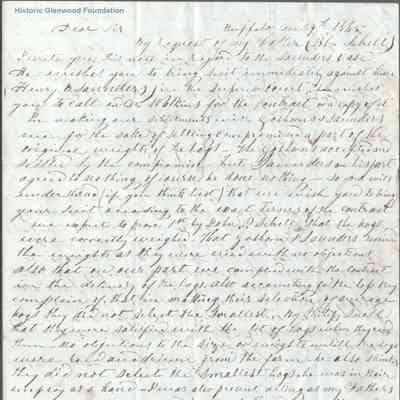 Historic Glenwood Foundation
Buffalo
Dear Sir
By Request of my Father (John Schell)
I write you this note in regard to the Saunders Case
He wishes you to bring suit immediately against him
Henry Saunders in the Supreme Court he wishes
you to call on Watkins for the contract or a copy of it
In making our settlement with Goshorn & Saunders
was for the sake of settling compromised a part of the
original weights of the hogs - the Goshorn's acceptions
settled by the compromise but Saunders on his part
agreed to nothing of course he does nothing - so as will
understand (if you think best) that we wish you to bring
your suit according to the exact terms of the contract
we expect to prove 1st by John Schell That the hogs
were correctly weighed That Goshorn & Saunders
the weights as they were cried with no objections
also that on our part we complied with the contract
in the delivery of the hogs. also accounting for the top they
complain of, that in making their selection of average
hogs they did not select the smallest. By Philip
that they were satisfied with the lot of hogs when they
them No objections to the size or weights untill the hogs
were to driven from the farm he also thinks
they did not select the smallest hogs he was in their
employ as a hand - I was also present acting as my Fathers